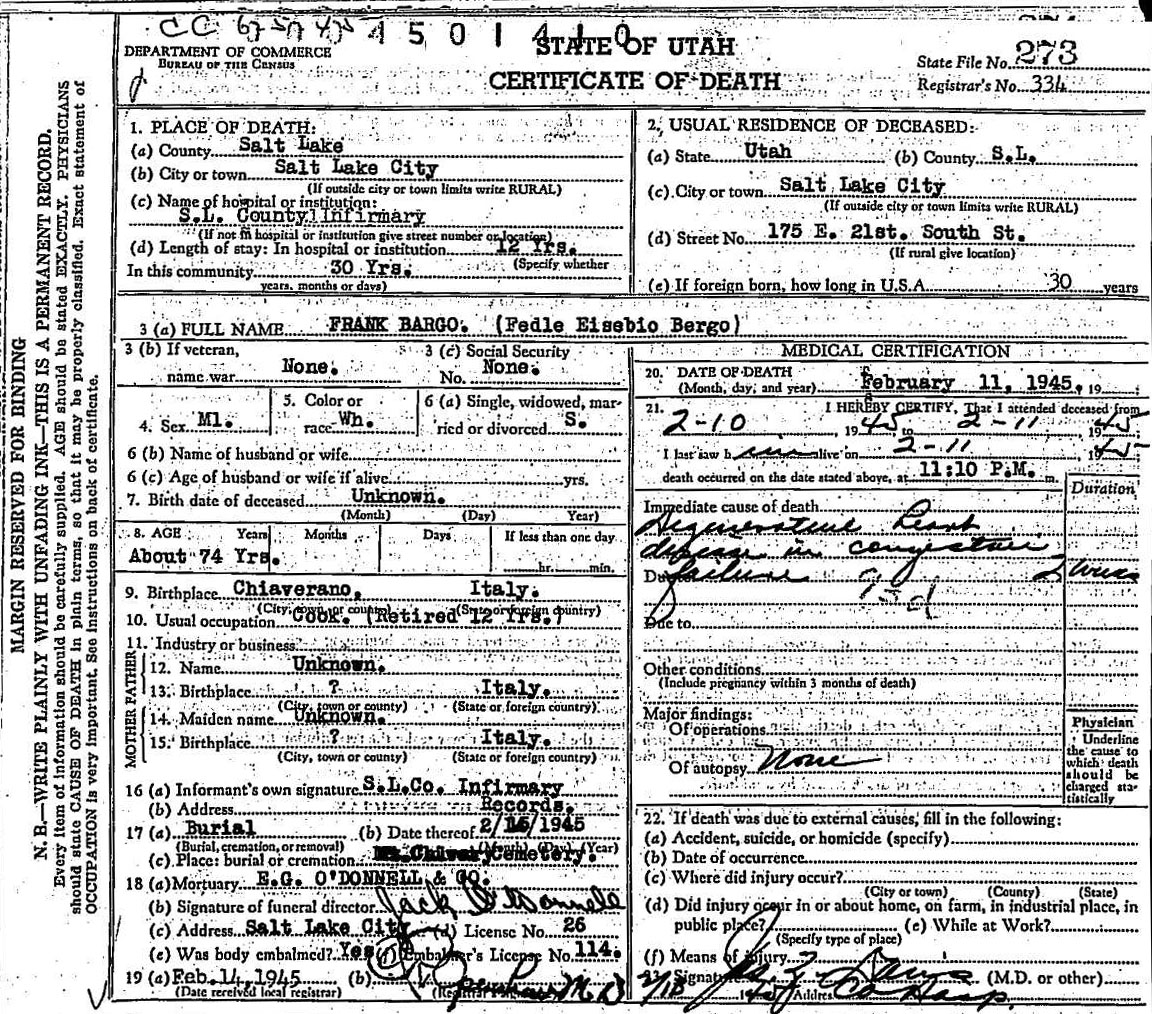 CC 4501410
STATE OF UTAH
DEPARTMENT OF COMMERCE
BUREAU OF THE CENSUS
CERTIFICATE OF DEATH
State File No. 273
Registrar's No. 334
MARGIN RESERVED FOR BINDING
N. B.—WRITE PLAINLY WITH UNFADING INK—THIS IS A PERMANENT RECORD.
Every item of information should be carefully supplied. AGE should be stated EXACTLY. PHYSICIANS
should state CAUSE OF DEATH in plain terms, so that it may be properly classified. Exact statement of
OCCUPATION is very important. See instructions on back of certificate.
1. PLACE OF DEATH:
(a) County Salt Lake
(b) City or town Salt Lake City
(If outside city or town limits write RURAL)
(c) Name of hospital or institution:
S.L. County Infirmary
(If not in hospital or institution give street number or location)
(d) Length of stay: In hospital or institution 12 Yrs.
(Specify whether
In this community 30 Yrs.
years, months or days)
2. USUAL RESIDENCE OF DECEASED:
(a) State Utah (b) County S.L.
(c) City or town Salt Lake City
(If outside city or town limits write RURAL)
(d) Street No. 175 E. 21st. South St.
(If rural give location)
(e) If foreign born, how long in U.S.A. 30 years
3 (a) FULL NAME FRANK BARGO. (Fedle Eisebio Bergo)
3 (b) If veteran,
name war None.
3 (c) Social Security
No. None.
4. Sex Ml.
5. Color or
race Wh.
6 (a) Single, widowed, mar-
ried or divorced S.
6 (b) Name of husband or wife
6 (c) Age of husband or wife if alive yrs.
7. Birth date of deceased Unknown.
(Month) (Day) Year)
8. AGE Years Months Days If less than one day
About 74 Yrs. hr. min.
9. Birthplace Chiaverano, Italy.
(City, town, or county) (State or foreign country)
10. Usual occupation Cook. (Retired 12 Yrs.)
11. Industry or business
FATHER
12. Name Unknown.
13. Birthplace ? Italy.
(City, town or county) (State or foreign country)
MOTHER
14. Maiden name Unknown.
15. Birthplace ? Italy.
(City, town or county) (State or foreign country)
16 (a) Informant's own signature S.L.Co. Infirmary
(b) Address Records.
17 (a) Burial (b) Date thereof 2/16/1945
(Burial, cremation, or removal) (Month) (Day) (Year)
(c) Place: burial or cremation Mt. Calvary Cemetery.
18 (a) Mortuary E.G. O'DONNELL & CO.
(b) Signature of funeral director Jack O'Donnell
(c) Address Salt Lake City (d) License No. 26
(e) Was body embalmed? Yes (f) Embalmer's License No. 114.
19 (a) Feb. 14, 1945 (b) M.D.
(Date received local registrar) (Registrar's Signature)
MEDICAL CERTIFICATION
20. DATE OF DEATH
(Month, day, and year) February 11, 1945. 19
21. I HEREBY CERTIFY, That I attended deceased from
2-10 1945 to 2-11, 1945
I last saw him alive on 2-11 1945
death occurred on the date stated above, at 11:10 P.M. m.
Duration
Immediate cause of death
Degenerative heart
disease in congestive
Due to failure 2 weeks
Due to
Other conditions
(Include pregnancy within 3 months of death)
Major findings:
Of operations
Of autopsy None
Physician
Underline
the cause to
which death
should be
charged sta-
tistically
22. If death was due to external causes, fill in the following:
(a) Accident, suicide, or homicide (specify)
(b) Date of occurrence
(c) Where did injury occur?
(City or town) (County) (State)
(d) Did injury occur in or about home, on farm, in industrial place, in
public place? (e) While at Work?
(Specify type of place)
(f) Means of injury
23. Signature (M.D. or other)
2/13 1945 Address Co Hosp.